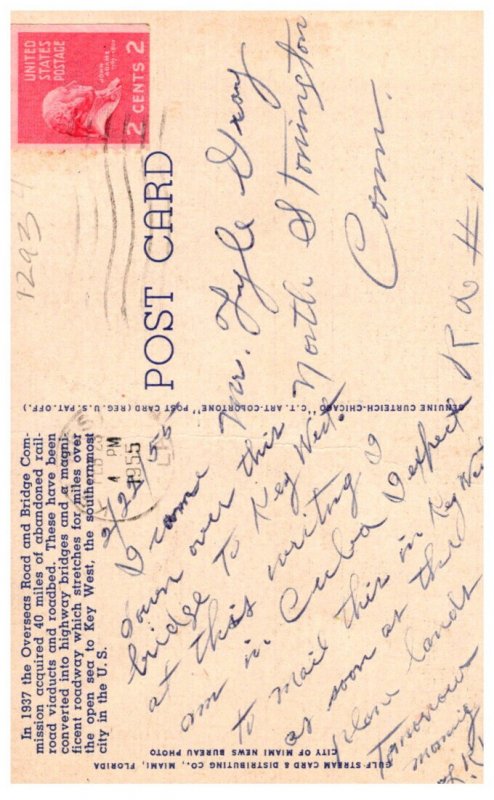 In 1937 the Overseas Road and Bridge Com-
mission acquired 40 miles of abandoned rail-
road viaducts and roadbed. These have been
converted into highway bridges and a magni-
ficent roadway which stretches for miles over
the open sea to Key West, the southernmost
city in the U. S.
2/22/55
I came
down over this
bridge to Key West.
at this writing I
am in Cuba I expect
to mail this in Key West
as soon as the
plane lands
Tomorrow
morning
GULF-STREAM CARD & DISTRIBUTING CO., MIAMI, FLORIDA
CITY OF MIAMI NEWS BUREAU PHOTO
GENUINE CURTEICH-CHICAGO "C.T. ART-COLORTONE" POST CARD (REG. U.S. PAT. OFF.)
POST CARD
4 PM
1955
UNITED
STATES
POSTAGE
JOHN
ADAMS
2 CENTS 2
1293
Mr. Lyle Gray
North Stonington
Conn.
R d # 1